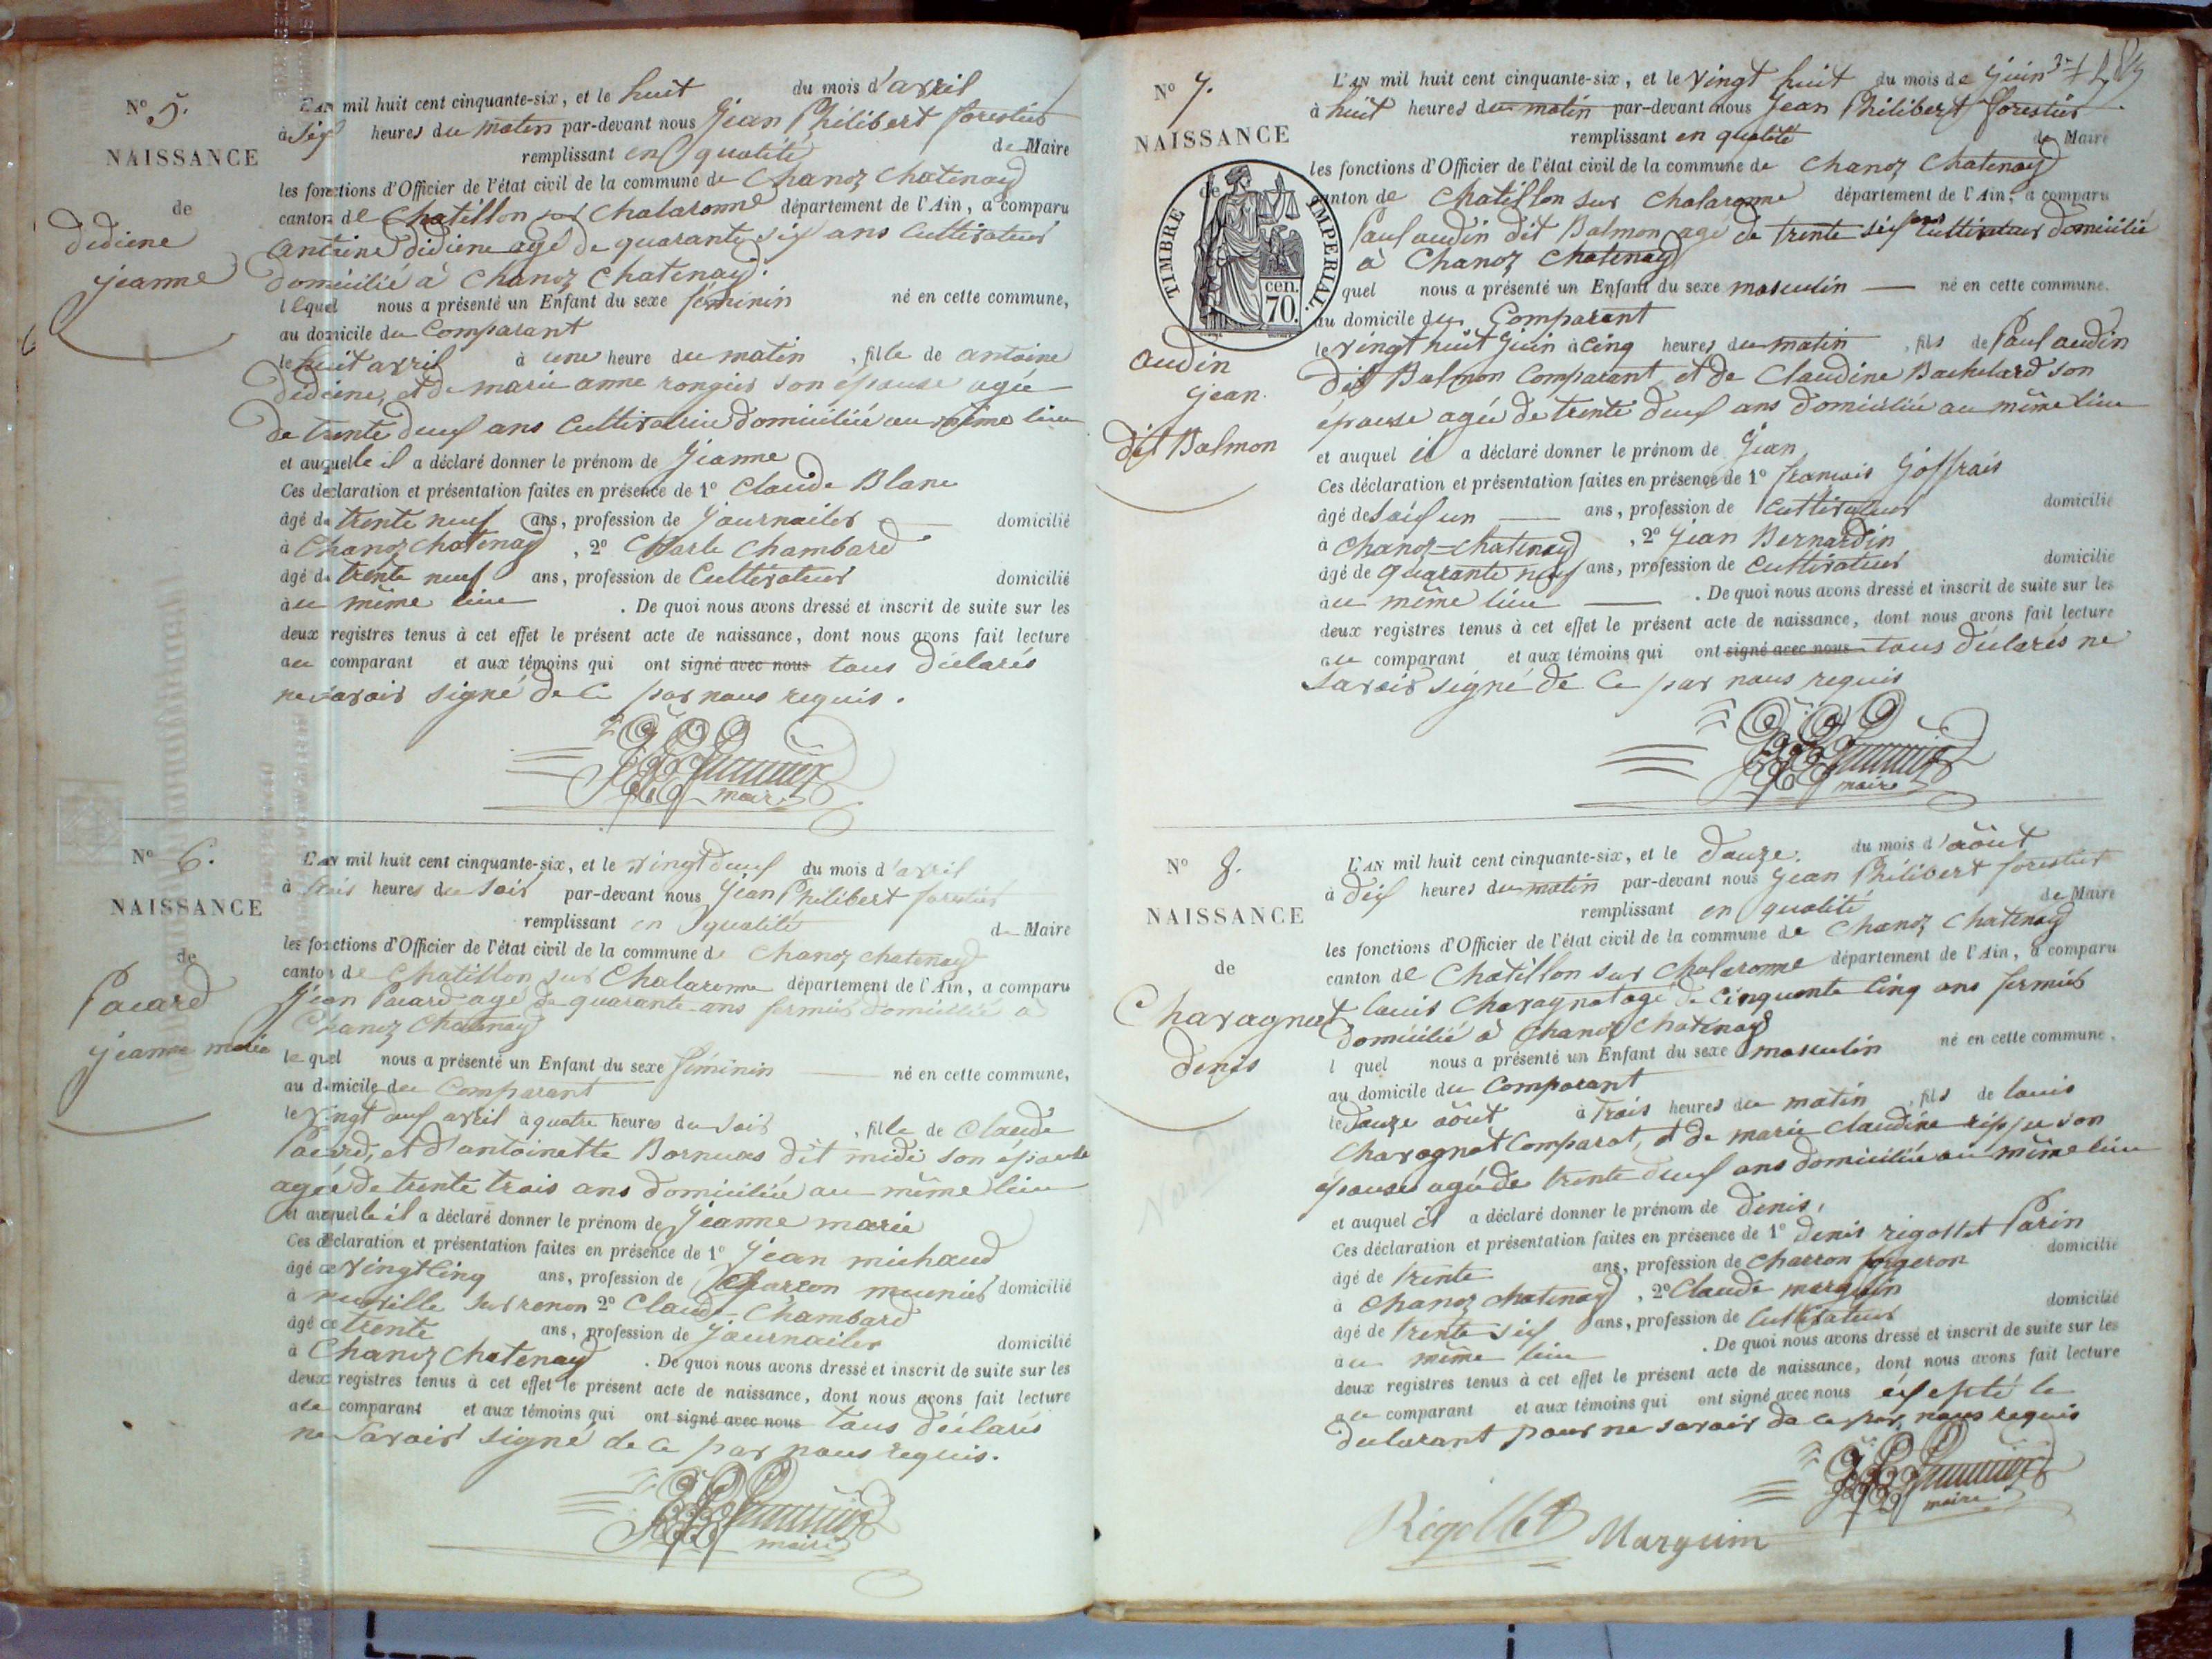 N° 5.
NAISSANCE
de
didiene
jeanne
L'AN mil huit cent cinquante-six, et le huit du mois d'avril
à six heures du matin par-devant nous Jean Philibert forestier
remplissant en qualité de Maire
les fonctions d'Officier de l'état civil de la commune de Chanoz Chatenay
canton de Chatillon sur Chalaronne département de l'Ain, a comparu
antoine didiene agé de quarante six ans Cultivateur
domicilié à Chanoz Chatenay.
lequel nous a présenté un Enfant du sexe féminin né en cette commune,
au domicile du Comparant
le huit avril à une heure du matin, fille de antoine
didiene, et de marie anne rongier son épouse agée
de trente deux ans Cultivatrice domiciliée au même lieu
et auquelle il a déclaré donner le prénom de Jeanne
Ces déclaration et présentation faites en présence de 1° Claude Blanc
âgé de trente neuf ans, profession de Journalier domicilié
à Chanoz chatenay, 2° Charle Chambard
âgé de trente neuf ans, profession de Cultivateur domicilié
au même lieu. De quoi nous avons dressé et inscrit de suite sur les
deux registres tenus à cet effet le présent acte de naissance, dont nous avons fait lecture
au comparant et aux témoins qui ont signé avec nous tous déclarés
ne savoir signé de ce par nous requis.
maire
N° 6.
NAISSANCE
de
Pacard
jeanne marie
L'AN mil huit cent cinquante-six, et le vingt deux du mois d'avril
à trois heures du soir par-devant nous Jean Philibert forestier
remplissant en qualité de Maire
les fonctions d'Officier de l'état civil de la commune de Chanoz chatenay
canton de Chatillon sur Chalaronne département de l'Ain, a comparu
Jean Pacard agé de quarante ans fermier domicilié à
Chanoz Chatenay
lequel nous a présenté un Enfant du sexe féminin né en cette commune,
au domicile du Comparant
le vingt deux avril à quatre heures du soir, fille de Claude
Pacard, et d'antoinette Bornuas dit midi son épouse
agée de trente trois ans domiciliée au même lieu
et auquelle il a déclaré donner le prénom de Jeanne marie
Ces déclaration et présentation faites en présence de 1° Jean michaud
âgé de vingt cinq ans, profession de Garcon meunier domicilié
à neuville sur renon 2° Claude Chambard
âgé de trente ans, profession de Journalier domicilié
à Chanoz chatenay. De quoi nous avons dressé et inscrit de suite sur les
deux registres tenus à cet effet le présent acte de naissance, dont nous avons fait lecture
au comparant et aux témoins qui ont signé avec nous tous déclarés
ne savoir signé de ce par nous requis.
maire
N° 7.
NAISSANCE
de
TIMBRE IMPERIAL.
70. cen.
audin
jean
dit Balmon
L'AN mil huit cent cinquante-six, et le vingt huit du mois de Juin
à huit heures du matin par-devant nous Jean Philibert forestier
remplissant en qualité de Maire
les fonctions d'Officier de l'état civil de la commune de Chanoz Chatenay
canton de Chatillon sur Chalaronne département de l'Ain, a comparu
Paul audin dit Balmon agé de trente six ans Cultivateur domicilié
à Chanoz chatenay
quel nous a présenté un Enfant du sexe masculin né en cette commune.
au domicile du Comparant
le vingt huit Juin à cinq heures du matin, fils de Paul audin
dit Balmon Comparant et de Claudine Bachelard son
épouse agée de trente deux ans domiciliée au même lieu
et auquel il a déclaré donner le prénom de Jean
Ces déclaration et présentation faites en présence de 1° francois Joffrais
âgé de soix un ans, profession de Cultivateur domicilié
à Chanoz-chatenay, 2° Jean Bernardin
âgé de quarante neuf ans, profession de Cultivateur domicilié
au même lieu. De quoi nous avons dressé et inscrit de suite sur les
deux registres tenus à cet effet le présent acte de naissance, dont nous avons fait lecture
au comparant et aux témoins qui ont signé avec nous tous déclarés ne
savoir signé de ce par nous requis
maire
N° 8.
NAISSANCE
de
Charagnat
denis
L'AN mil huit cent cinquante-six, et le douze. du mois d'août
à dix heures du matin par-devant nous Jean Philibert forestier
remplissant en qualité de Maire
les fonctions d'Officier de l'état civil de la commune de Chanoz Chatenay
canton de Chatillon sur Chalaronne département de l'Ain, a comparu
louis Charagnat agé de cinquante cinq ans fermier
domicilié à Chanoz Chatenay
l quel nous a présenté un Enfant du sexe masculin né en cette commune.
au domicile du Comparant
le douze août à trois heures du matin, fils de louis
Charagnat Comparat, et de marie Claudine son
épouse agée de trente deux ans domiciliée au même lieu
et auquel il a déclaré donner le prénom de denis,
Ces déclaration et présentation faites en présence de 1° denis rigollet Parin
âgé de trente ans, profession de Charron forgeron domicilié
à Chanoz chatenay, 2° Claude marguin
âgé de trente six ans, profession de Cultivateur domicilié
au même lieu. De quoi nous avons dressé et inscrit de suite sur les
deux registres tenus à cet effet le présent acte de naissance, dont nous avons fait lecture
au comparant et aux témoins qui ont signé avec nous éxsepté le
déclarant pour ne savoir de ce par nous requis
maire
Rigollet Marguin